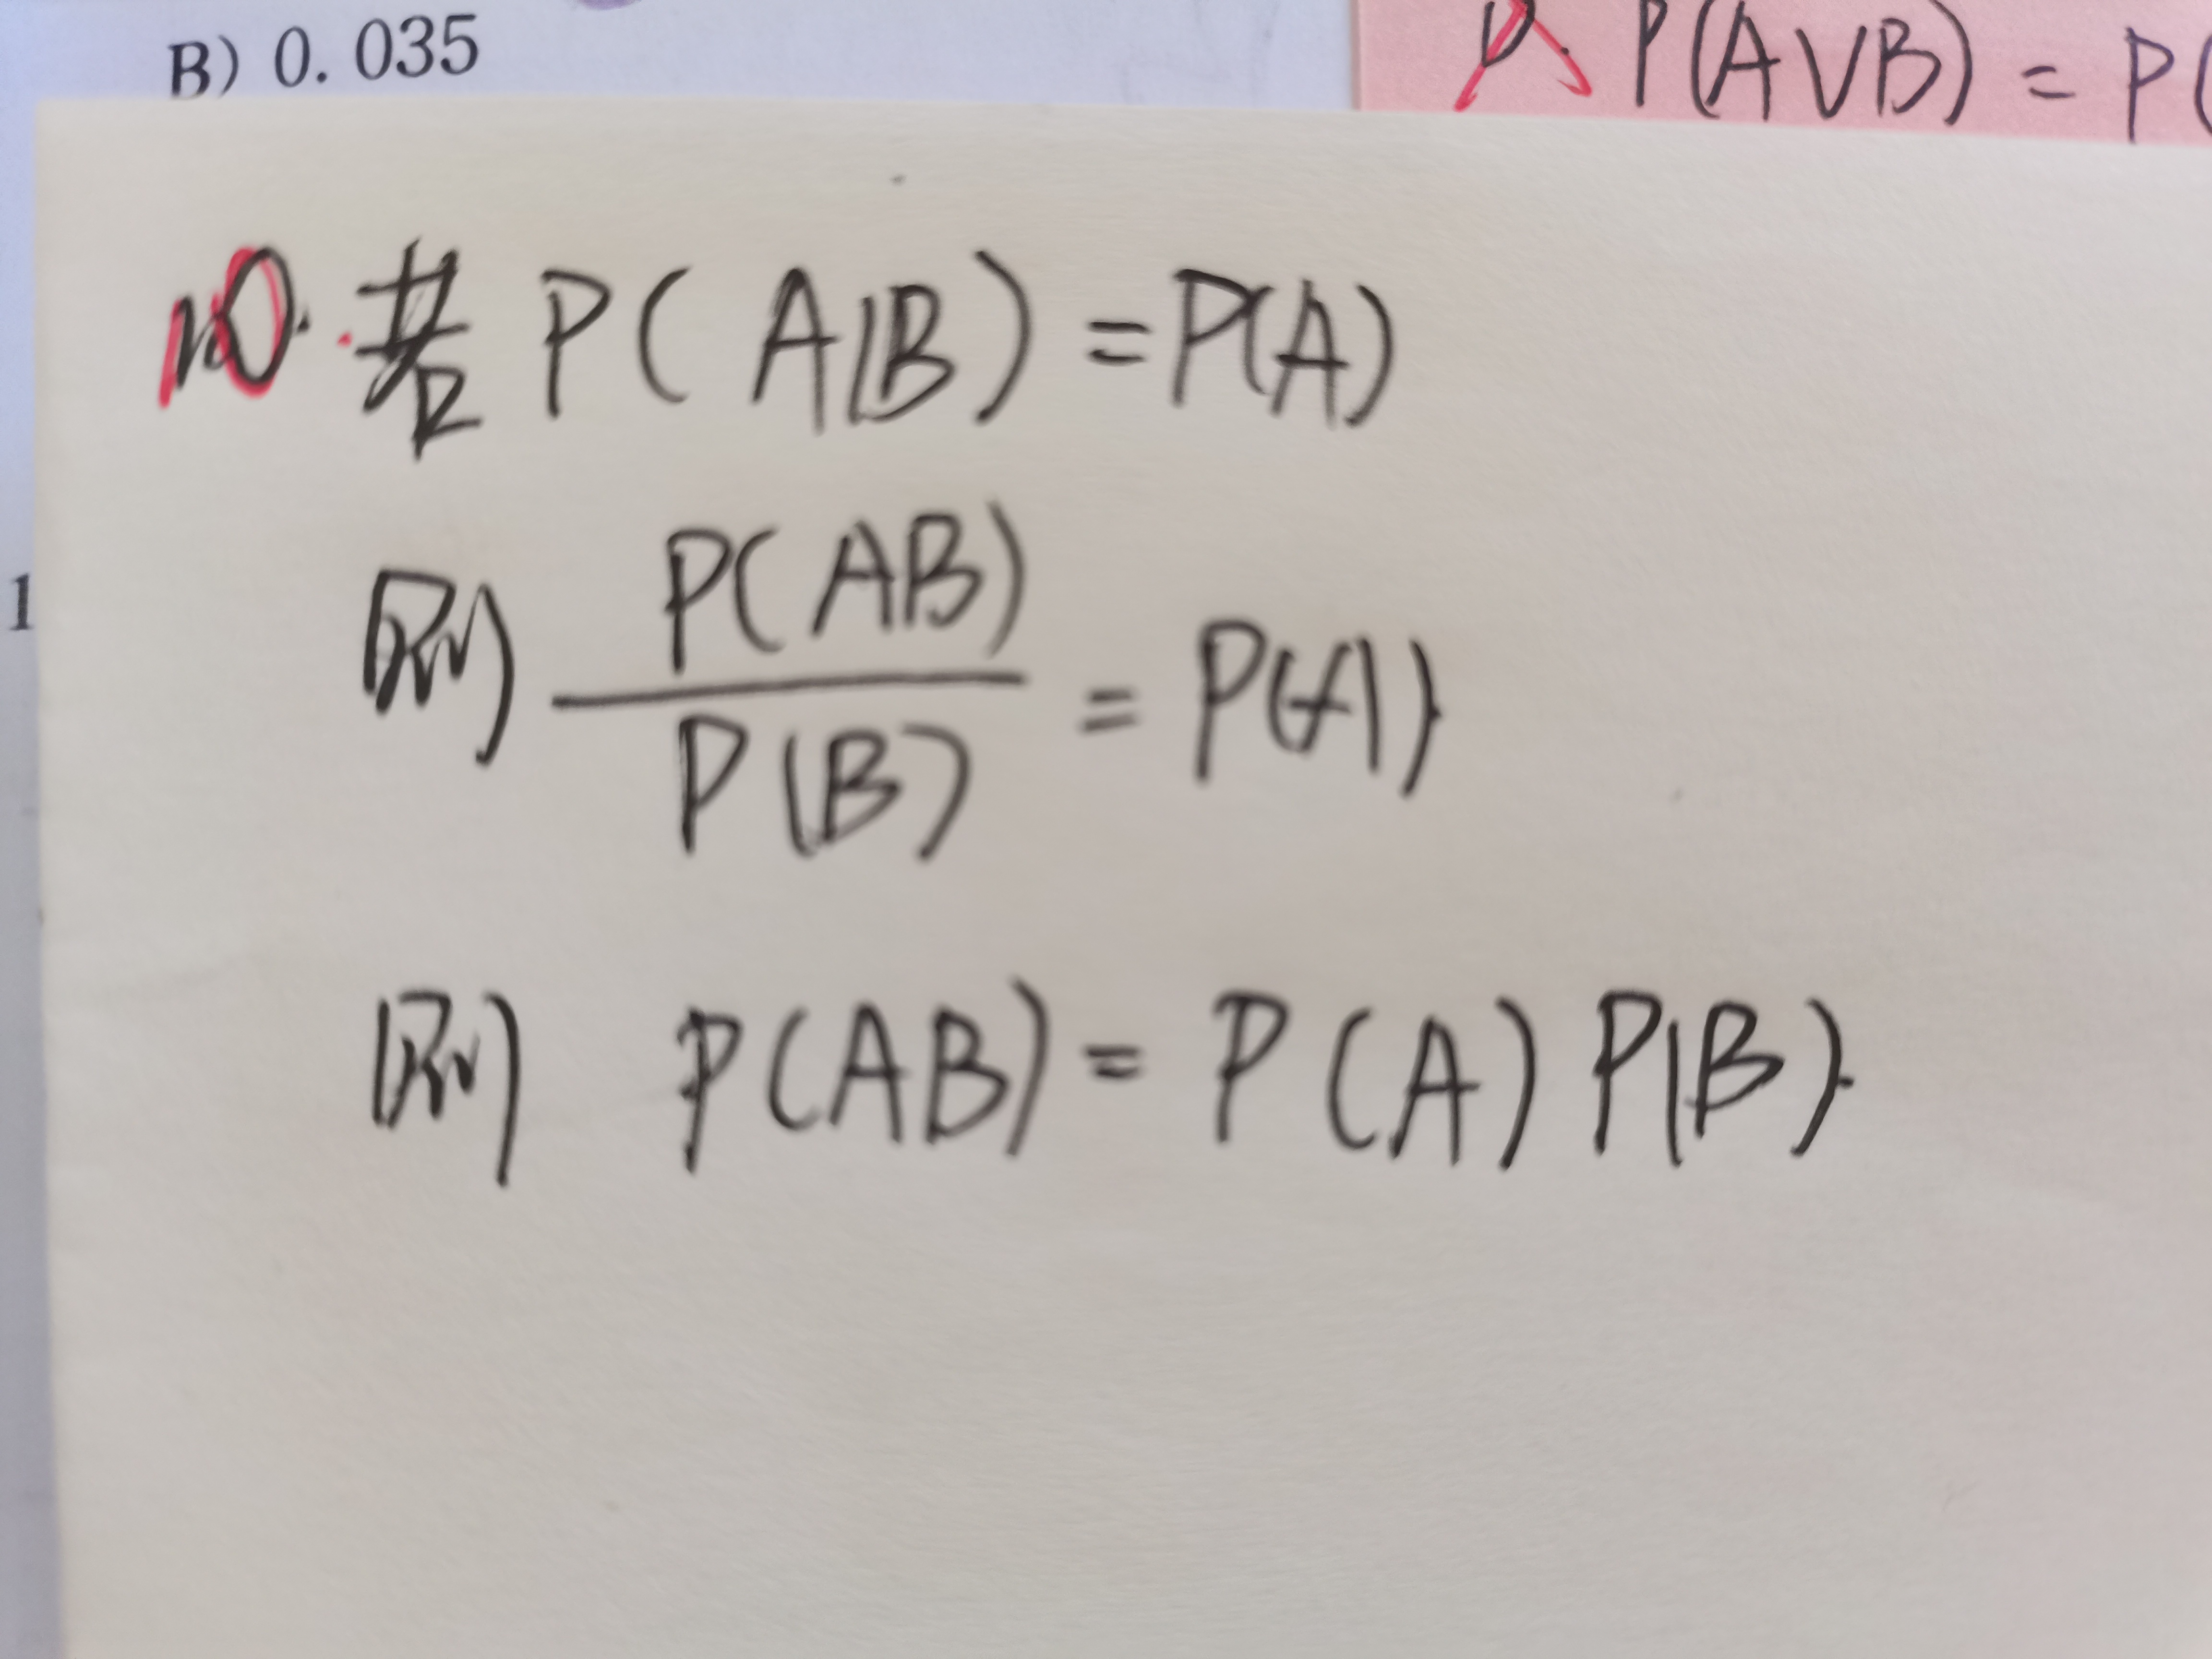 B) 0. 035
P(A∨B) = P(
10. 若 P(A|B) = P(A)
1
则 P(AB) / P(B) = P(A)
则 P(AB) = P(A) P(B)